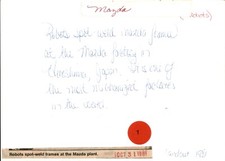 Mazda
Robots spot weld mazda frames
at the Mazda factory in
Hiroshima, Japan. It is one
of the most automated factories
in the world.
1
Robots spot-weld frames at the Mazda plant.
OCT 31